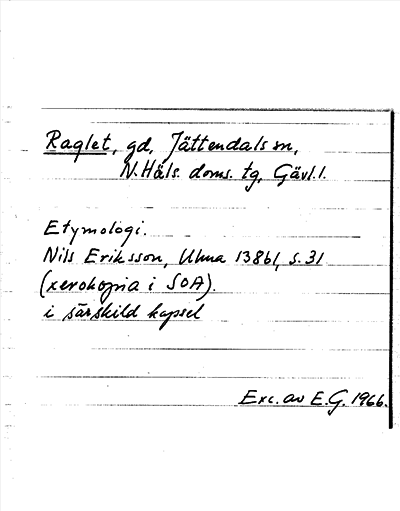 Raglet, gd, Jättendals sn,
N. Häls. doms. tg, Gävl. l.
Etymologi.
Nils Eriksson, Uluma 13861, s. 31
(xerokopia i SOA).
i särskild kapsel
Exc. av E.G. 1966.